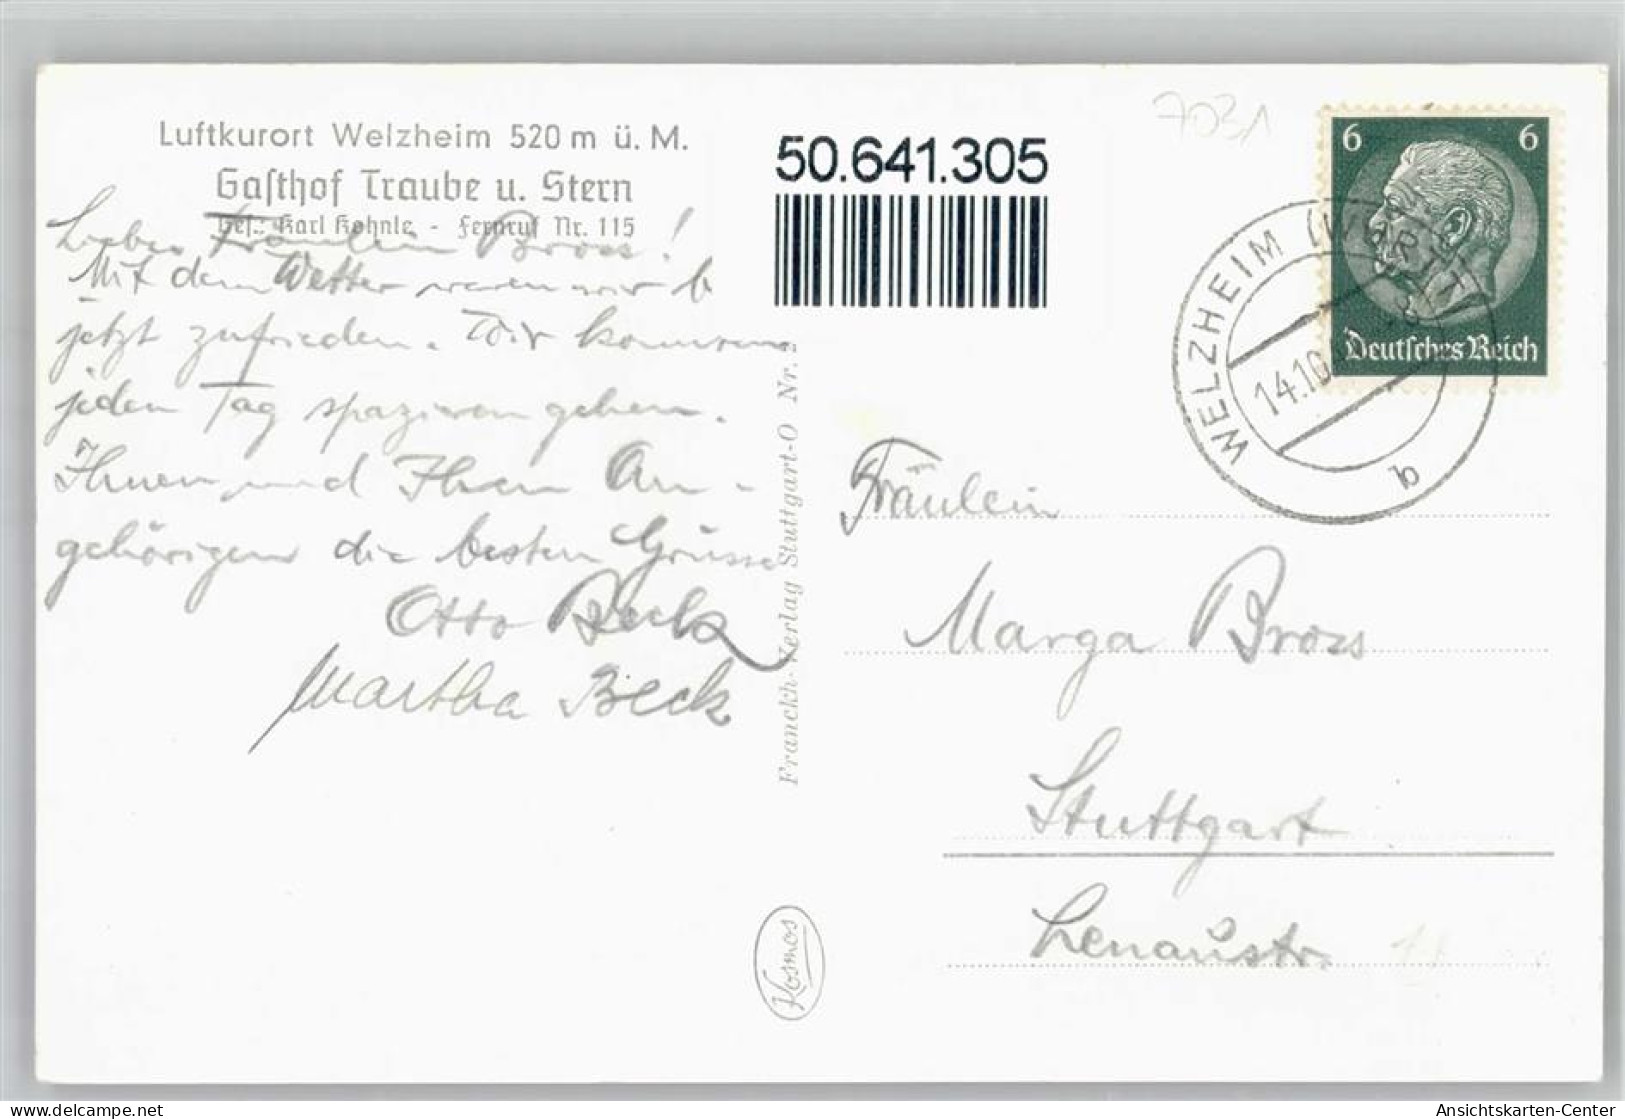 7031
Luftkurort Welzheim 520 m ü. M.
Gasthof Traube u. Stern
Bes.: Karl Kohnle - Fernruf Nr. 115
50.641.305
6 6
Deutsches Reich
WELZHEIM (WÜRTT
14.10
b
Liebes Fräulein Bross!
Mit dem Wetter waren wir b
jetzt zufrieden. Wir konnten
jeden Tag spazieren gehen.
Ihnen und Ihren An-
gehörigen die besten Grüsse
Otto Beck
Martha Beck
Franckh-Verlag Stuttgart-O Nr.
Kosmos
Fräulein
Marga Bross
Stuttgart
Lenaustr.
Ansichtskarten-Center